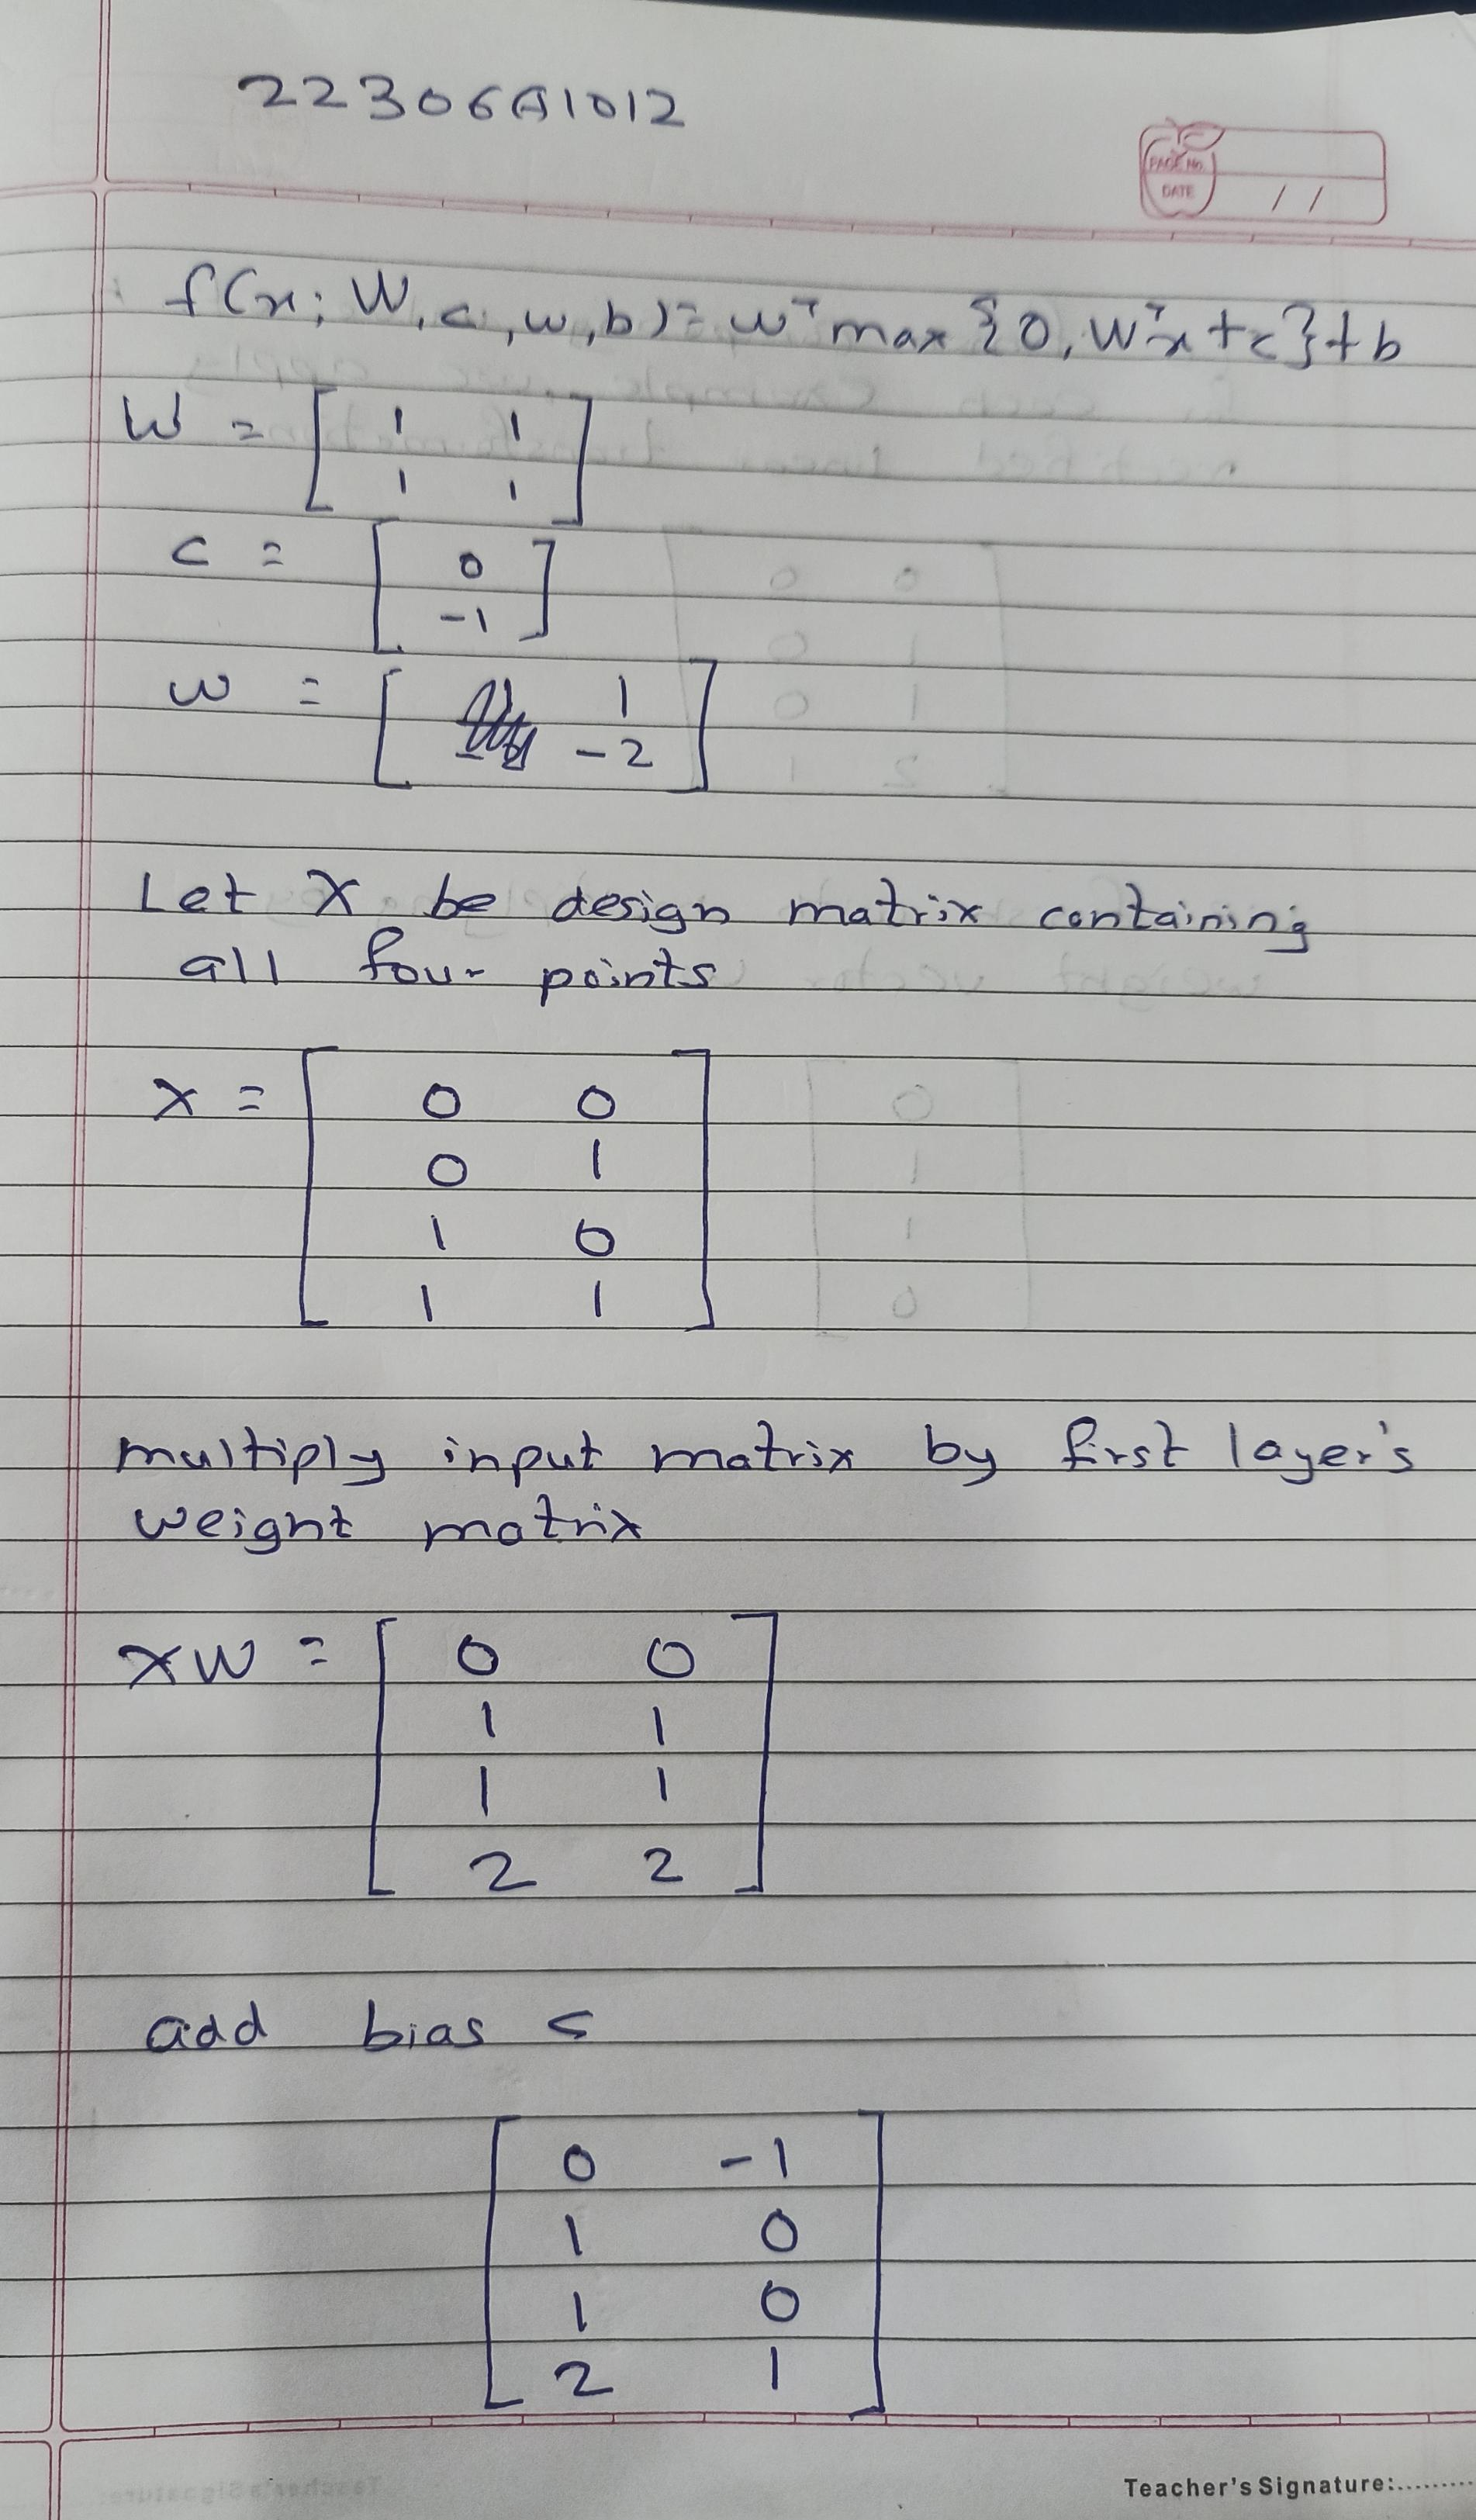 22306A1012
PAGE No.
DATE / /
f(x; W, c, w, b) = wᵀ max {0, Wᵀx + c} + b
W = [ 1 1
1 1 ]
c = [ 0
-1 ]
w = [ 1
-2 ]
Let X be design matrix containing
all four points
X = [ 0 0
0 1
1 0
1 1 ]
multiply input matrix by first layer's
weight matrix
XW = [ 0 0
1 1
1 1
2 2 ]
add bias c
[ 0 -1
1 0
1 0
2 1 ]
Teacher's Signature:.........